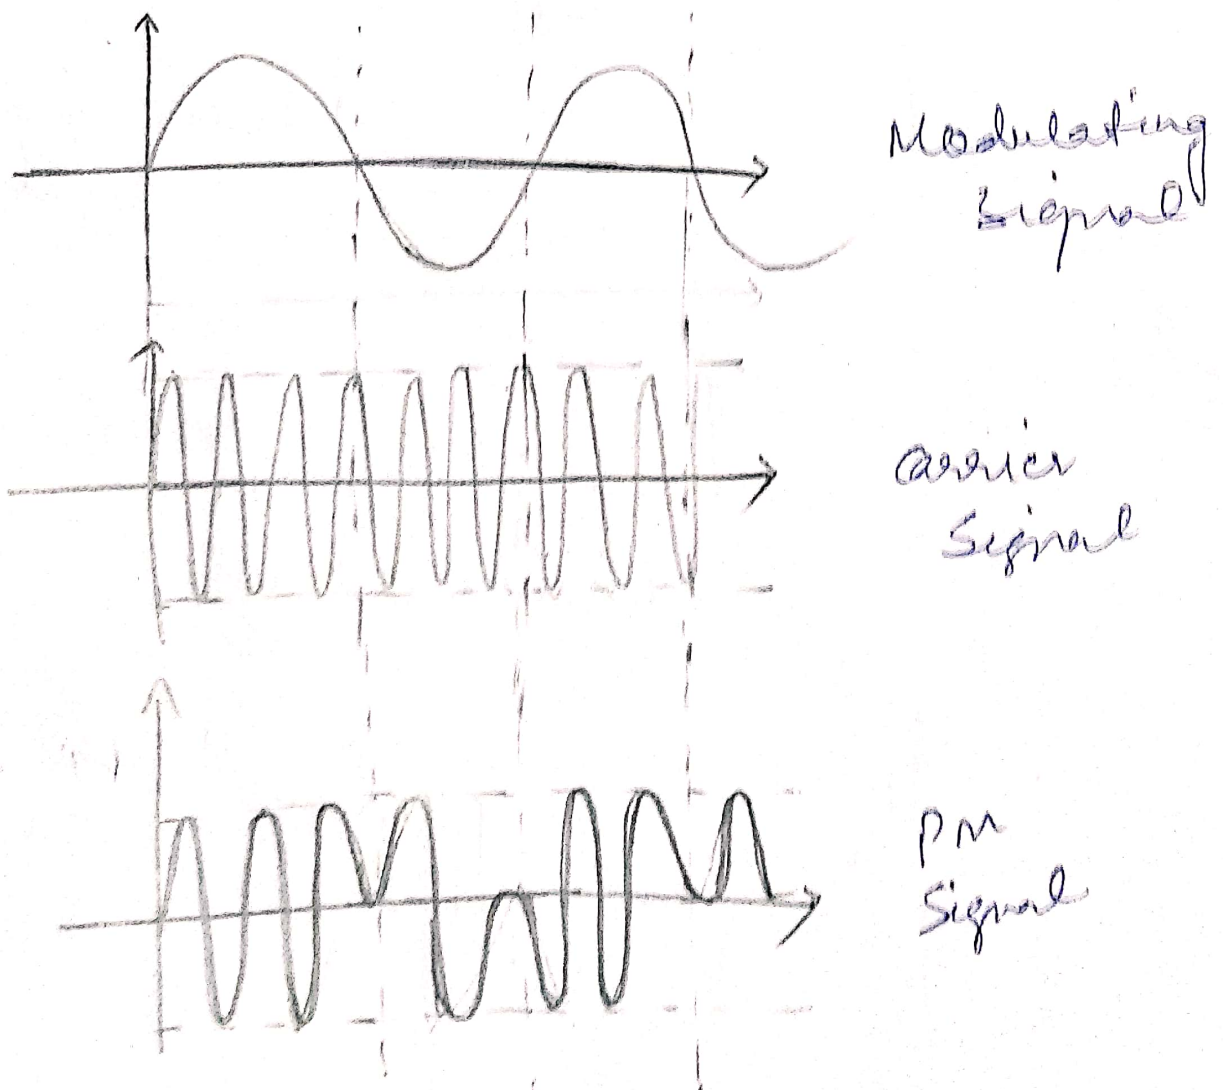 Modulating
Signal
Carrier
Signal
PM
Signal